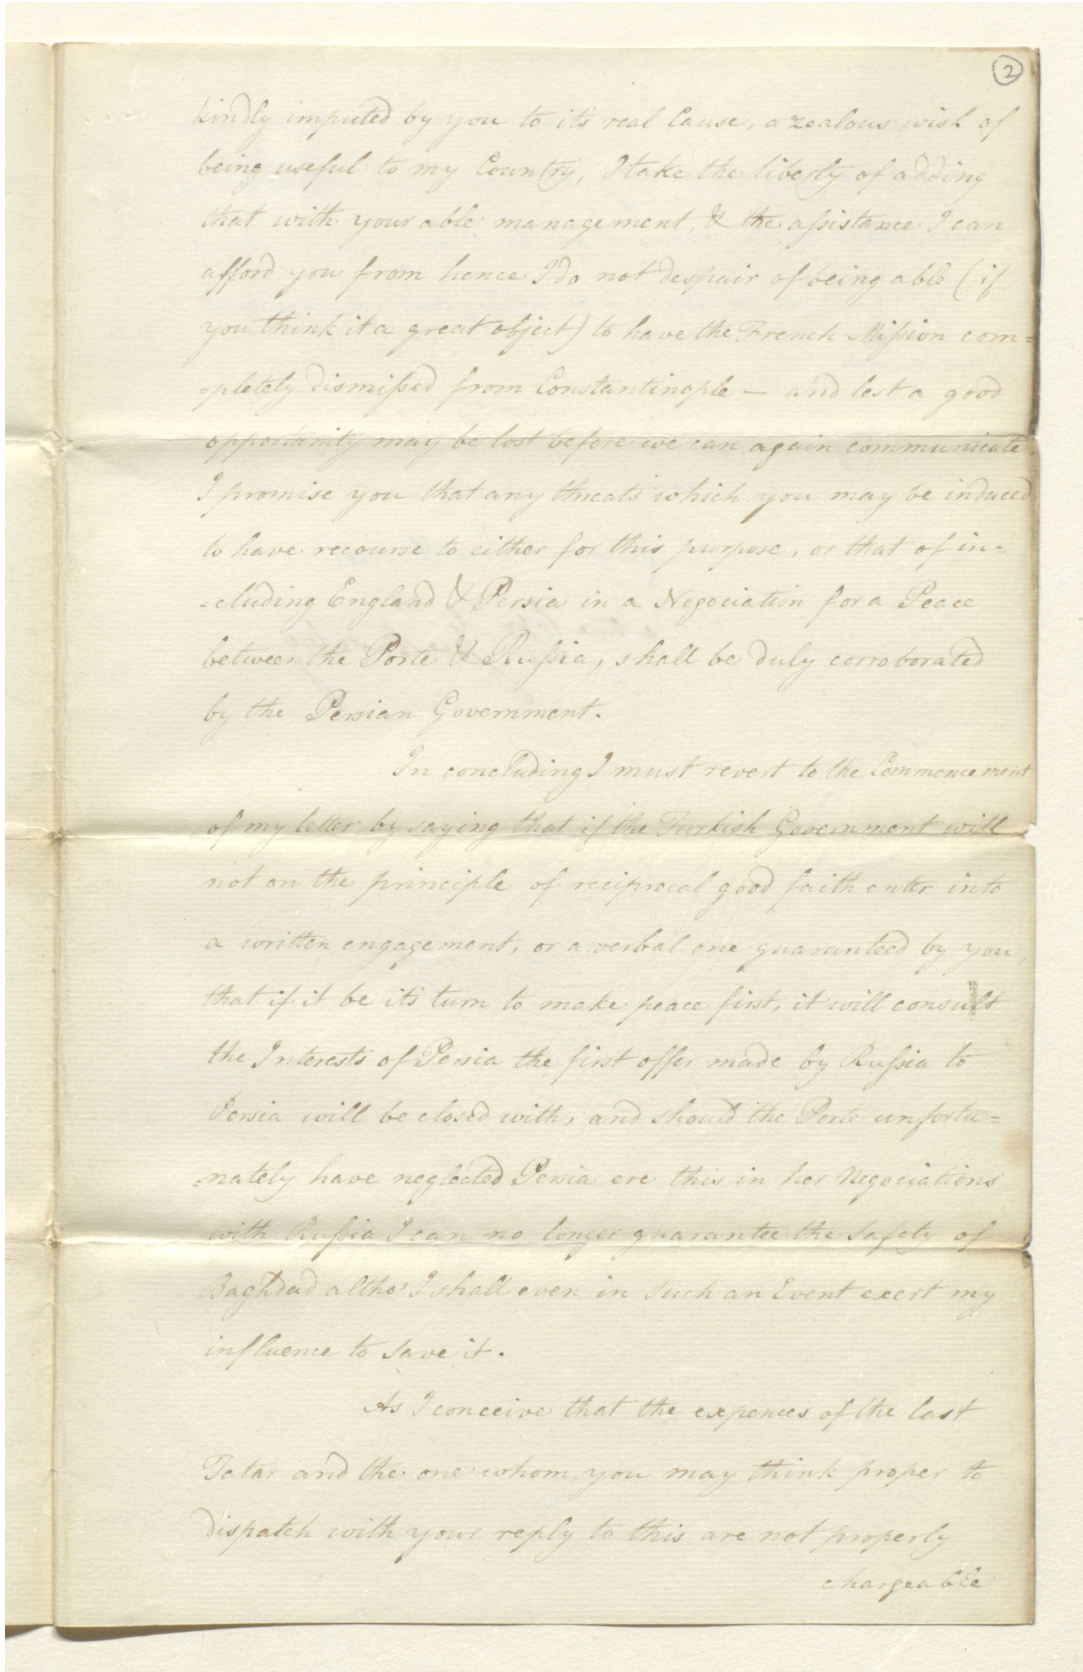 2
kindly imputed by you to it's real Cause, a zealous wish of
being useful to my Country, I take the liberty of adding
that with your able management, & the assistance I can
afford you from hence I do not despair of being able (if
you think it a great object) to have the French Mission com=
=pletely dismissed from Constantinople — and lest a good
opportunity may be lost before we can again communicate
I promise you that any threats which you may be induced
to have recourse to either for this purpose, or that of in=
=cluding England & Persia in a Negociation for a Peace
between the Porte & Russia, shall be duly corroborated
by the Persian Government.
In concluding I must revert to the Commencement
of my letter by saying that if the Turkish Government will
not on the principle of reciprocal good faith enter into
a written engagement, or a verbal one guaranteed by you,
that if it be it's turn to make peace first, it will consult
the Interests of Persia the first offer made by Russia to
Persia will be closed with, and should the Porte unfortu=
=nately have neglected Persia ere this in her Negociations
with Russia I can no longer guarantee the safety of
Baghdad altho' I shall even in such an Event exert my
influence to save it.
As I conceive that the expences of the last
Tatar and the one whom you may think proper to
dispatch with your reply to this are not properly
chargeable